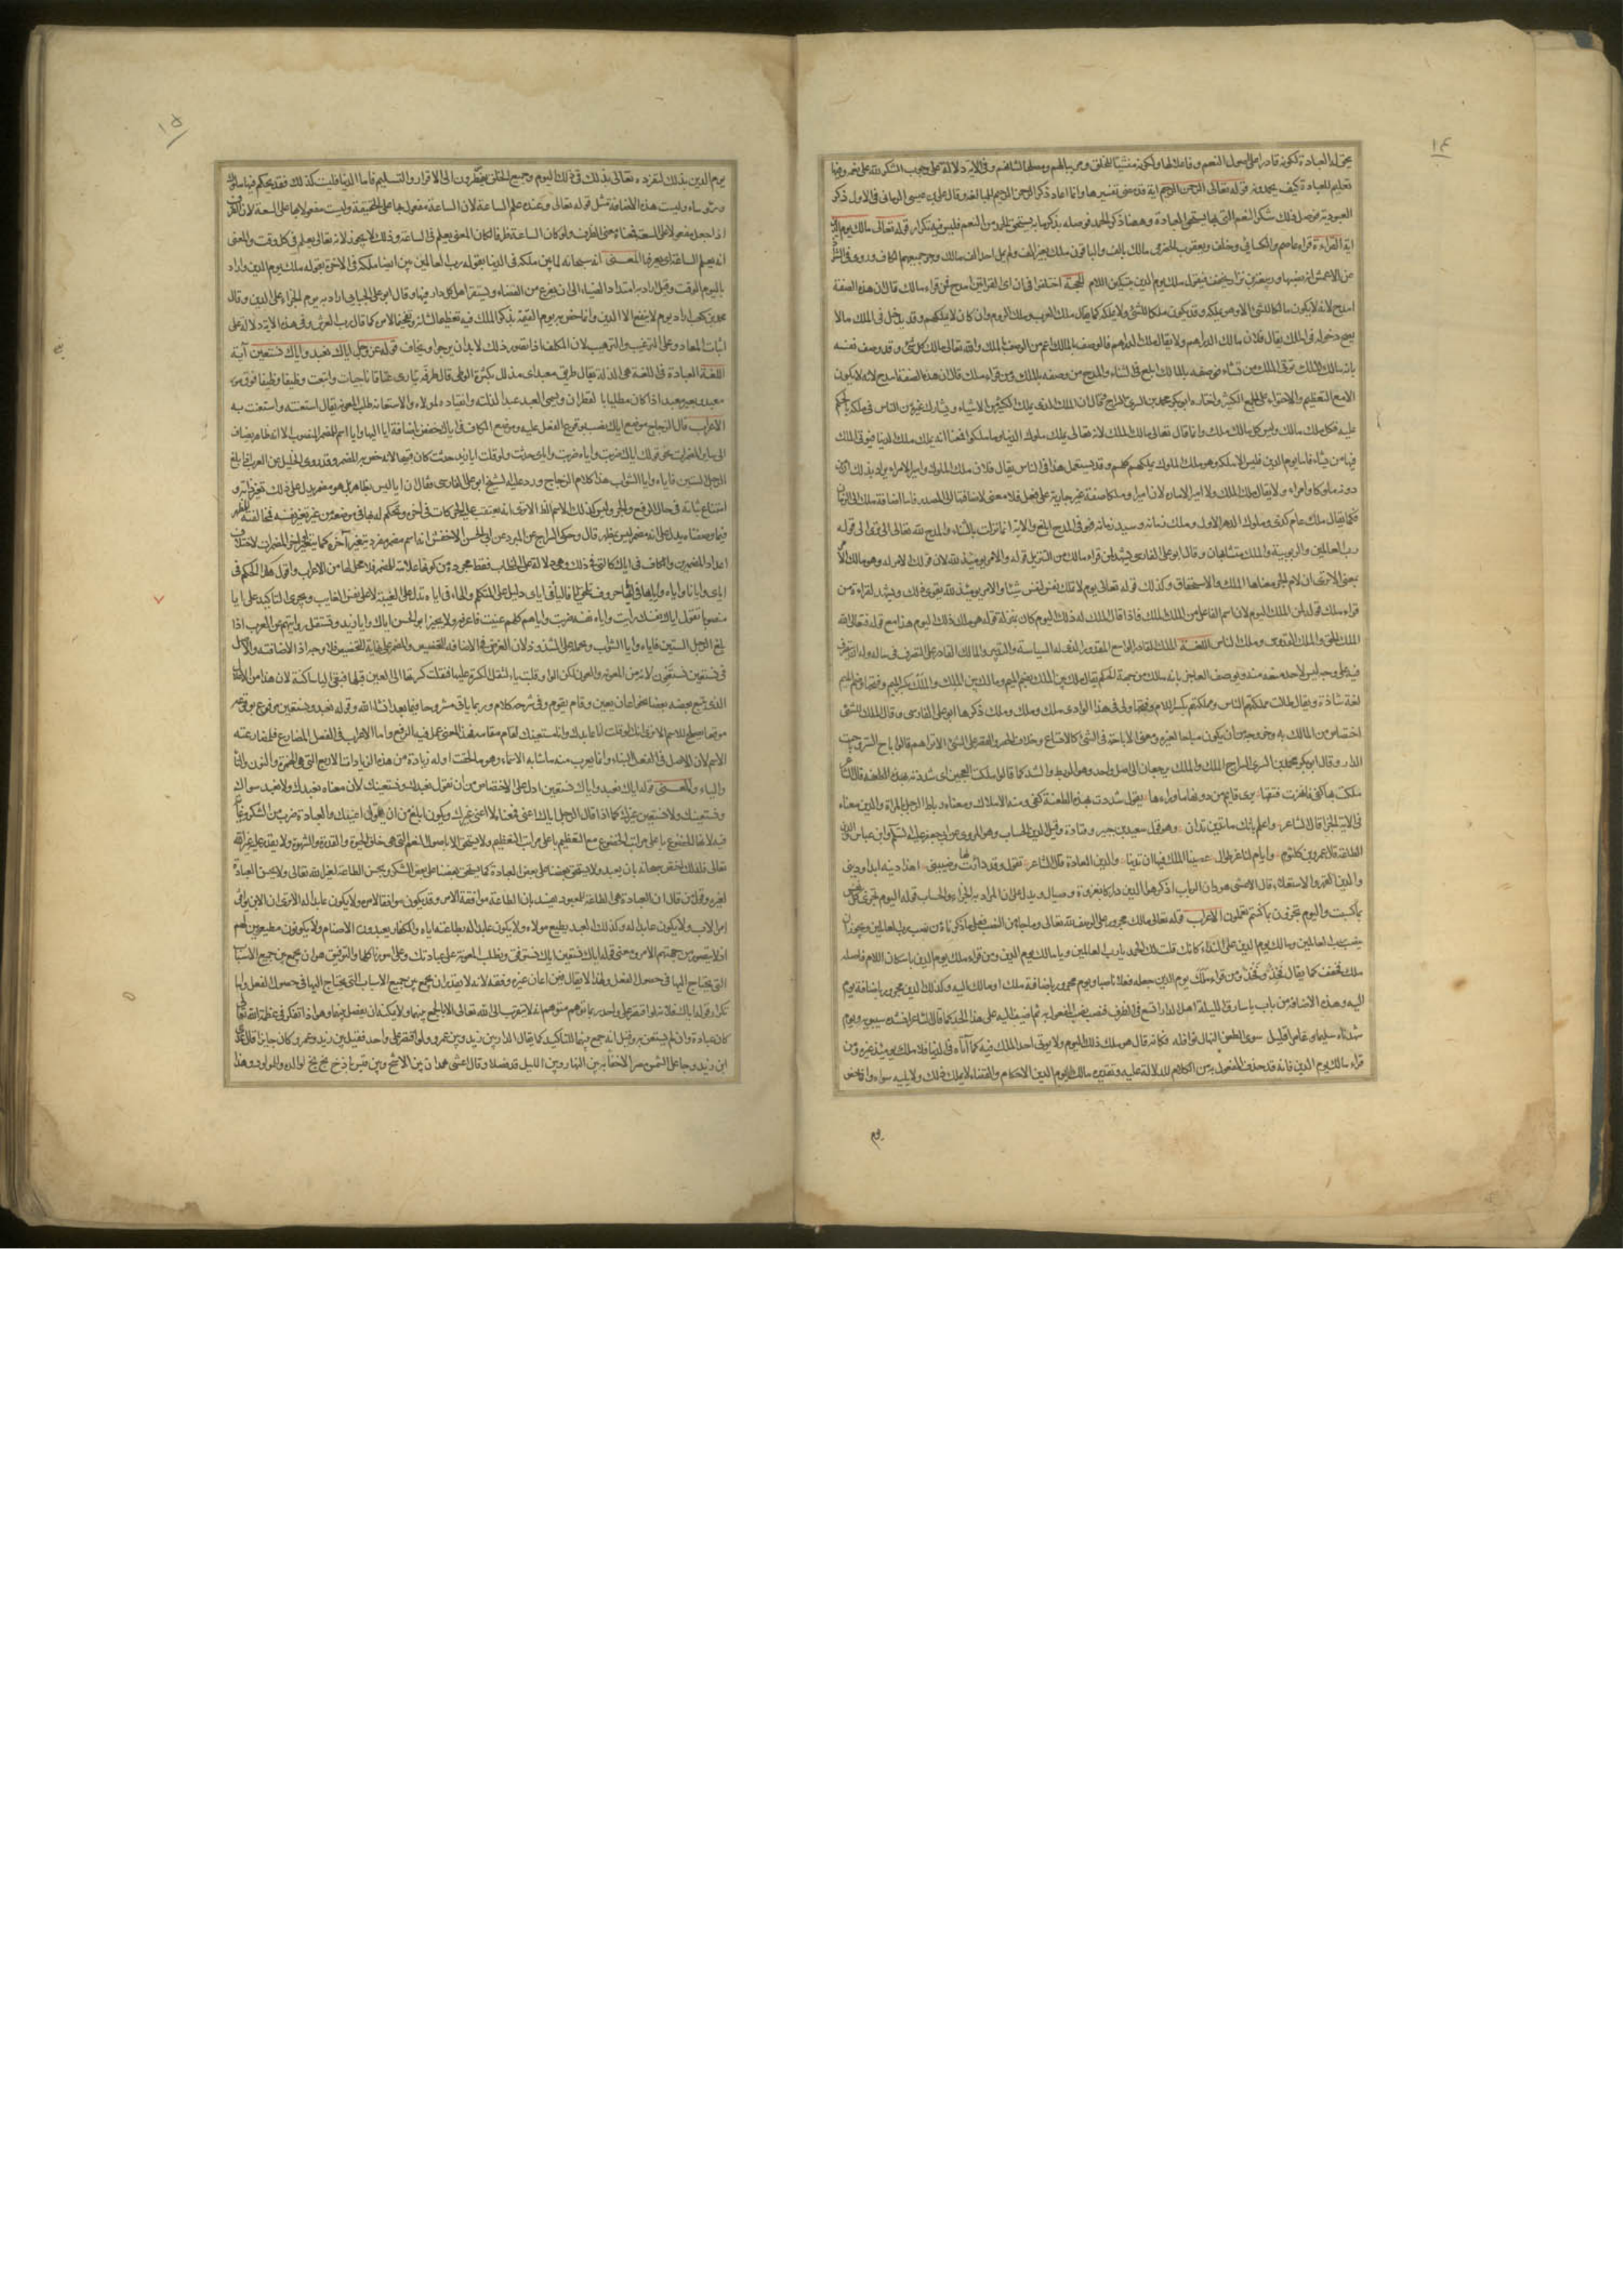 ١٤
يحق له العبادة لكونه قادرا على اصول النعم وفاعلا لها ولكونه منشئا للخلق ومربيا لهم ومصلحا لشانهم وفي الاية دلالة على وجوب الشكر لله على نعمه وفيها
تعليم للعبادة كيف يحمدونه قوله تعالى الرحمن الرحيم اية قد مضى تفسيرها وانما اعاد ذكر الرحمن الرحيم للمبالغة وقال علي بن عيسى الرماني في الاول ذكر
العبودية فوصل ذلك بشكر النعم التي بها يستحق العبادة وههنا ذكر الحمد فوصله بذكر ما به يستحق الحمد من النعم فليس فيه تكرار قوله تعالى مالك يوم الدين
اية القراءة قراء عاصم والكسائي وخلف ويعقوب الحضرمي مالك بالف والباقون ملك بغير الف ولم يمل احد الف مالك وجر جميعهم الكاف وروى في الشواذ
عن الاعمش انه نصبها وربيعة بن نزار يخففه فيقول ملك يوم الدين بتسكين اللام الحجة اختلفوا في ان اي القراءتين امدح فمن قراء مالك قال ان هذه الصفة
امدح لانه لا يكون مالكا للشئ الا وهو يملكه وقد يكون ملكا للشئ ولا يملكه كما يقال ملك العرب وملك الروم وان كان لا يملكهم وقد يدخل في الملك مالا
يصح دخوله في الملك يقال فلان مالك الدراهم ولا يقال ملك الدراهم فالوصف بالمالك اعم من الوصف بالملك والله تعالى مالك كل شئ وقد وصف نفسه
بانه مالك الملك توتي الملك من تشاء فوصفه بالمالك ابلغ في الثناء والمدح من وصفه بالملك ومن قراء ملك قال ان هذه الصفة امدح لانه لا يكون
الا مع التعظيم والاحتواء على الجمع الكثير واختاره ابو بكر محمد بن السري السراج فقال ان الملك الذي يملك الكثير من الاشياء ويشارك غيره من الناس في ملكه بالحكم
عليه فكل ملك مالك وليس كل مالك ملك وانما قال تعالى مالك الملك لانه تعالى يملك ملوك الدنيا وما ملكوا فمعناه انه يملك ملك الدنيا فيؤتي الملك
فيها من يشاء فاما يوم الدين فليس الا ملكه وهو ملك الملوك يملكهم كلهم وقد يستعمل هذا في الناس يقال فلان ملك الملوك وامير الامراء يراد بذلك ان من
دونه ملوكا وامراء ولا يقال ملك الملك ولا امير الامارة لان اميرا وملكا صفة غير جارية على فعل فلا معنى لاضافتها الى المصدر فاما اضافة ملك الى الزمان
فكما يقال ملك عام كذا وملوك الدهر الاول وملك زمانه وسيد زمانه فهو في المدح ابلغ والاية انما نزلت بالثناء والمدح لله تعالى الا ترى الى قوله
رب العالمين والربوبية والملك متشابهان وقال ابو علي الفارسي يشهد لمن قراء مالك من التنزيل قوله والامر يومئذ لله لان قولك الامر له وهو مالك الامر
بمعنى الا ترى ان لام الجر معناها الملك والاستحقاق وكذلك قوله تعالى يوم لا تملك نفس لنفس شيئا والامر يومئذ لله يقوى ذلك ويشهد لقراءة من
قراء ملك قوله لمن الملك اليوم لان اسم الفاعل من الملك الملك فاذا قال الملك له ذلك اليوم كان بمنزلة قوله هو ملك ذلك اليوم هذا مع قوله فتعالى الله
الملك الحق والملك القدوس وملك الناس اللغة الملك القادر الواسع المقدور الذي له السياسة والتدبير والمالك القادر على التصرف في ماله وله ان يتصرف
فيه على وجه ليس لاحد منعه منه ويوصف العاجز بانه مالك من جهة الحكم يقال ملك بين الملك بضم الميم ومالك بين الملك والملك بكسر الميم وفتحها وضم الميم
لغة شاذة ويقال طالت مملكتهم الناس ومملكتهم بكسر اللام وفتحها ولى في هذا الوادي ملك وملك وملك ذكرها ابو علي الفارسي وقال الملك للشئ
اختصاص من المالك به وخروجه من ان يكون مباحا لغيره ومعنى الاباحة في الشئ كالاتساع وخلاف الحصر والقصر على الشئ الا تراهم قالوا باح السر وباحت
الدار وقال ابو بكر محمد بن السري السراج الملك والملك يرجعان الى اصل واحد وهو الربط والشد كما قالوا ملكت العجين اي شددته بهذه الطعنة قال الشاعر
ملكت بها كفي فانهرت فتقها يرى قايم من دونها ما وراءها يقول شددت بهذه الطعنة كفي ومنه الاملاك ومعناه رباط الرجل بالمراة والدين معناه
في الاية الجزاء قال الشاعر واعلم بانك ما تدين تدان وهو قول سعيد بن جبير وقتادة وقيل الدين الحساب وهو المروي عن ابي جعفر عليه السلم وابن عباس والدين
الطاعة قال عمرو بن كلثوم وايام لنا غر طوال عصينا الملك فيها ان ندينا والدين العادة قال الشاعر تقول وقد دراءت لها وضيني اهذا دينه ابدا وديني
والدين القهر والاستعلاء قال الاعشى هو دان الرباب اذ كرهوا الدين دراكا بغزوة وصيال ويدل على ان المراد به الجزاء والحساب قوله اليوم تجزى كل نفس
بما كسبت واليوم تجزون ما كنتم تعملون الاعراب قوله تعالى مالك مجرور على الوصف لله تعالى وما جاء من النصب فعلى ما ذكرناه من نصب رب العالمين ويجوز ان
ينصب رب العالمين ومالك يوم الدين على النداء كانك قلت لك الحمد يا رب العالمين ويا مالك يوم الدين ومن قراء ملك يوم الدين باسكان اللام فاصله
ملك فخفف كما يقال فخذ وفخذ ومن قراء ملك يوم الدين جعله فعلا ماضيا ويوم مجرور باضافة ملك او مالك اليه وكذلك الدين مجرور باضافة يوم
اليه وهذه الاضافة من باب يا سارق الليلة اهل الدار اتسع في الظرف فنصب نصب المفعول به ثم اضيف اليه على هذا الحد كما قال الشاعر انشده سيبويه ويوم
شهدناه سليما وعامرا قليل سوى الطعن النهال نوافله فكانه قال هو ملك ذلك اليوم ولا يوتي احدا الملك فيه كما اتاه في الدنيا فلا ملك يومئذ غيره ومن
قراء مالك يوم الدين فانه قد حذف المفعول به من الكلام للدلالة عليه وتقديره مالك يوم الدين الاحكام والقضاء لا يملك ذلك ولا يليه سواه وانما خص
يوم
١٥
يوم الدين بذلك لتفرده تعالى بذلك في ذلك اليوم وجميع الخلق يضطرون الى الاقرار والتسليم فاما الدنيا فليست كذلك فقد يحكم فيها ملوك
ورؤساء وليست هذه الاضافة مثل قوله تعالى وعنده علم الساعة لان الساعة مفعول بها على الحقيقة وليست مفعولا بها على السعة لان الظرف
اذا جعل مفعولا على السعة فمعناه معنى الظرف ولو كان الساعة ظرفا لكان المعنى يعلم في الساعة وذلك لا يجوز لانه تعالى يعلم في كل وقت والمعنى
انه يعلم الساعة اي يعرفها المعنى انه سبحانه لما بين ملكه في الدنيا بقوله رب العالمين بين ايضا ملكه في الاخرة بقوله ملك يوم الدين واراد
باليوم الوقت وقيل اراد به امتداد الضياء الى ان يفرغ من القضاء ويستقر اهل كل دار فيها وقال ابو علي الجبايي اراد به يوم الجزاء على الدين وقال
محمد بن كعب اراد يوم لا ينفع الا الدين وانما خص يوم القيمة بذكر الملك فيه تعظيما لشانه وتفخيما لامره كما قال رب العرش وفي هذه الاية دلالة على
اثبات المعاد وعلى الترغيب والترهيب لان المكلف اذا تصور ذلك لا بد ان يرجو ويخاف قوله عز وجل اياك نعبد واياك نستعين آية
اللغة العبادة في اللغة هي الذلة يقال طريق معبد اي مذلل بكثرة الوطي قال طرفة تباري عتاقا ناجيات واتبعت وظيفا وظيفا فوق مور
معبد وبعير معبد اذا كان مطليا بالقطران وسمى العبد عبدا لذلته وانقياده لمولاه والاستعانة طلب المعونة يقال استعنته واستعنت به
الاعراب قال الزجاج موضع اياك نصب بوقوع الفعل عليه وموضع الكاف في اياك خفض باضافة ايا اليها وايا اسم للضمير المنصوب الا انه ظاهر يضاف
الى ساير المضمرات نحو قولك اياك ضربت واياه ضربت واياى حدثت ولو قلت ايا زيد حدثت كان قبيحا لانه خص به المضمر وقد روى الخليل عن العرب اذا بلغ
الرجل الستين فاياه وايا الشواب هذا كلام الزجاج ورد عليه الشيخ ابو علي الفارسي فقال ان ايا ليس بظاهر بل هو مضمر يدل على ذلك تغير ذاته و
امتناع ثباته في حال الرفع والجر وليس كذلك الاسم الظاهر الا ترى انه يعتقب عليه الحركات في آخره ويحكم له بها في موضعه من غير تغير نفسه فمخالفته المظهر
فيما وصفناه يدل على انه مضمر ليس بمظهر قال وحكى السراج عن المبرد عن ابي الحسن الاخفش انه اسم مفرد مضمر يتغير آخره كما يتغير اخر المضمرات لاختلاف
اعداد المضمرين والكاف في اياك كالتي في ذلك وهي دلالة على الخطاب فقط مجردة من كونها علامة للضمير فلا محل لها من الاعراب واقول هكذا الحكم في
اياي وايانا واياه واياها في انها حروف تلحق ايا فالياء في اياي دليل على المتكلم والهاء في اياه تدل على الغيبة لا على نفس الغايب ويجري التاكيد على ايا
منصوبا تقول اياك نفسك رايت واياه نفسه ضربت واياهم كلهم عنيت فاعرفه ولا يجيز ابو الحسن اياك وايا زيد ويستقل روايتهم عن العرب اذا
بلغ الرجل الستين فاياه وايا الشواب ويحمله على الشذوذ لان الغرض في الاضافة التخصيص والمضمر على نهاية التخصيص فلا وجه اذا لاضافته والاصل
في نستعين نستعون لانه من المعونة والعون لكن الواو قلبت ياء لثقل الكسرة عليها فنقلت كسرتها الى العين قبلها فتبقى الياء ساكنة لان هذا من الاعلال
الذي يتبع بعضه بعضا نحو اعان يعين وقام يقوم وفي شرحه كلام وربما ياتي مشروحا فيما بعد ان شاء الله وقوله نعبد ونستعين مرفوع لوقوعه
موقعا يصلح للاسم الا ترى انك لو قلت انا عابدك وانا مستعينك لقام مقامه وهذا المعنى عمل فيه الرفع واما الاعراب في الفعل المضارع فلمضارعته
الاسم لان الاصل في الفعل البناء وانما يعرب منه ما شابه الاسماء وهو ما لحقت اوله زيادة من هذه الزيادات الاربع التي هي الهمزة والنون والتاء
والياء والمعنى قوله اياك نعبد واياك نستعين ادل على الاختصاص من ان نقول نعبدك ونستعينك لان معناه نعبدك ولا نعبد سواك
ونستعينك ولا نستعين غيرك كما اذا قال الرجل اياك اعني فمعناه لا اعني غيرك ويكون ابلغ من ان يقول اعنيك والعبادة ضرب من الشكر وغاية
فيه لانها الخضوع باعلى مراتب الخضوع مع التعظيم باعلى مراتب التعظيم ولا يستحق الا باصول النعم التي هي خلق الحيوة والقدرة والشهوة ولا يقدر عليه غير الله
تعالى فلذلك اختص سبحانه بان يعبد ولا يستحق بعضنا على بعض العبادة كما يستحق بعضنا على بعض الشكر ويحسن الطاعة لغير الله تعالى ولا يحسن العبادة
لغيره وقول من قال ان العبادة هي الطاعة للمعبود يفسد بان الطاعة موافقة الامر وقد يكون موافقا لامره ولا يكون عابدا له الا ترى ان الابن يوافق
امر الاب ولا يكون عابدا له وكذلك العبد يطيع مولاه ولا يكون عابدا له بطاعته اياه والكفار يعبدون الاصنام ولا يكونون مطيعين لهم
اذ لا يتصور من جهتهم الامر ومعنى قوله اياك نستعين اياك نستوفق ونطلب المعونة على عبادتك وعلى امورنا كلها والتوفيق هو ان يجمع بين جميع الاسباب
التي يحتاج اليها في حصول الفعل ولهذا لا يقال فيمن اعان غيره وفقه لانه لا يقدر ان يجمع بين جميع الاسباب التي يحتاج اليها في حصول الفعل واما
تكرار قوله اياك فلانه لو اقتصر على واحد ربما توهم متوهم انه لا يتقرب الى الله تعالى الا بالجمع بينهما ولا يمكنه ان يفصل بينهما وهو اذا تفكر في عظمة الله تعالى
كان عبادة وان لم يستعن به وقيل انه جمع بينهما للتاكيد كما يقال الدار بين زيد وبين عمرو ولو اقتصر على واحد فقيل بين زيد وعمرو كان جايزا قال عدي
ابن زيد وجاعل الشمس مصرا لا خفاء به بين النهار وبين الليل قد فصلا وقال اعشى همدان بين الاشج وبين قيس باذخ بخ بخ لوالده وللمولود وهذا